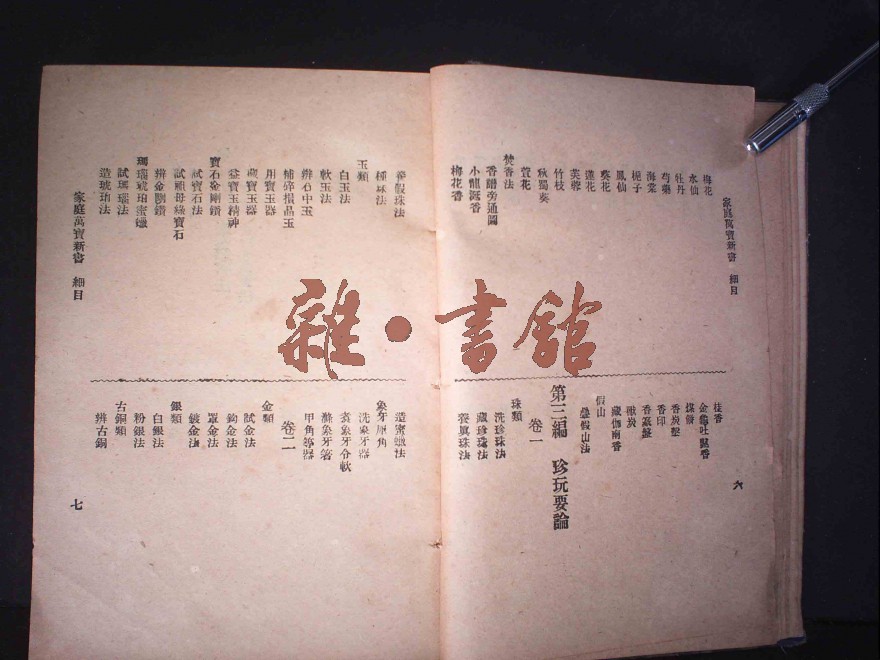 家庭萬寶新書　細目
梅花
水仙
牡丹
芍藥
海棠
梔子
鳳仙
葵花
蓮花
芙蓉
竹枝
秋蜀葵
萱花
焚香法
香譜旁通圖
小龍涎香
梅花香
桂香
金龜吐氣香
煤餅
香炭墼
香印
香篆盤
獸炭
藏伽南香
假山
疊假山法
第三編　珍玩要論
卷一
珠類
洗珍珠法
藏珍珠法
養眞珠法
六
養假珠法
種珠法
玉類
白玉法
軟玉法
辨石中玉
補碎損晶玉
用寶玉器
藏寶玉器
益寶玉精神
寶石金剛鑽
試寶石法
試祖母綠寶石
辨金剛鑽
瑪瑙琥珀蜜蠟
試瑪瑙法
造琥珀法
家庭萬寶新書　細目
造蜜蠟法
象牙犀角
洗象牙器
煮象牙令軟
滌象牙箸
甲角等器
卷二
金類
試金法
鉤金法
罩金法
鍍金法
銀類
白銀法
粉銀法
古銅類
辨古銅
七
雜·書館